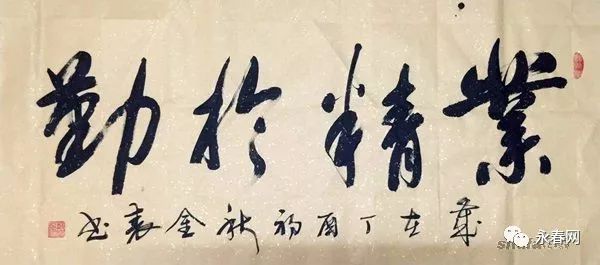 業精於勤
歲在丁酉初秋金书
永春网